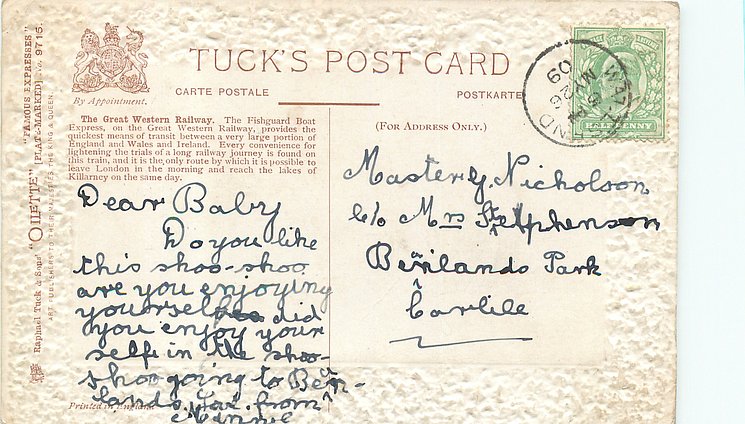 "FAMOUS EXPRESSES"
Raphael Tuck & Sons' "OILETTE" [PLATE-MARKED] No. 9715.
ART PUBLISHERS TO THEIR MAJESTIES THE KING & QUEEN.
By Appointment.
TUCK'S POST CARD
CARTE POSTALE
POSTKARTE
The Great Western Railway. The Fishguard Boat
Express, on the Great Western Railway, provides the
quickest means of transit between a very large portion of
England and Wales and Ireland. Every convenience for
lightening the trials of a long railway journey is found on
this train, and it is the only route by which it is possible to
leave London in the morning and reach the lakes of
Killarney on the same day.
(FOR ADDRESS ONLY.)
Dear Baby
Do you like
this shoo-shoo
are you enjoying
yourself did
you enjoy your
self in the shoo-
shoo going to Ben-
lands. from
Minnie
Printed in England
Master G. Nicholson
c/o Mrs Stephenson
Benlands Park
Carlile
HALFPENNY
MY 26
09